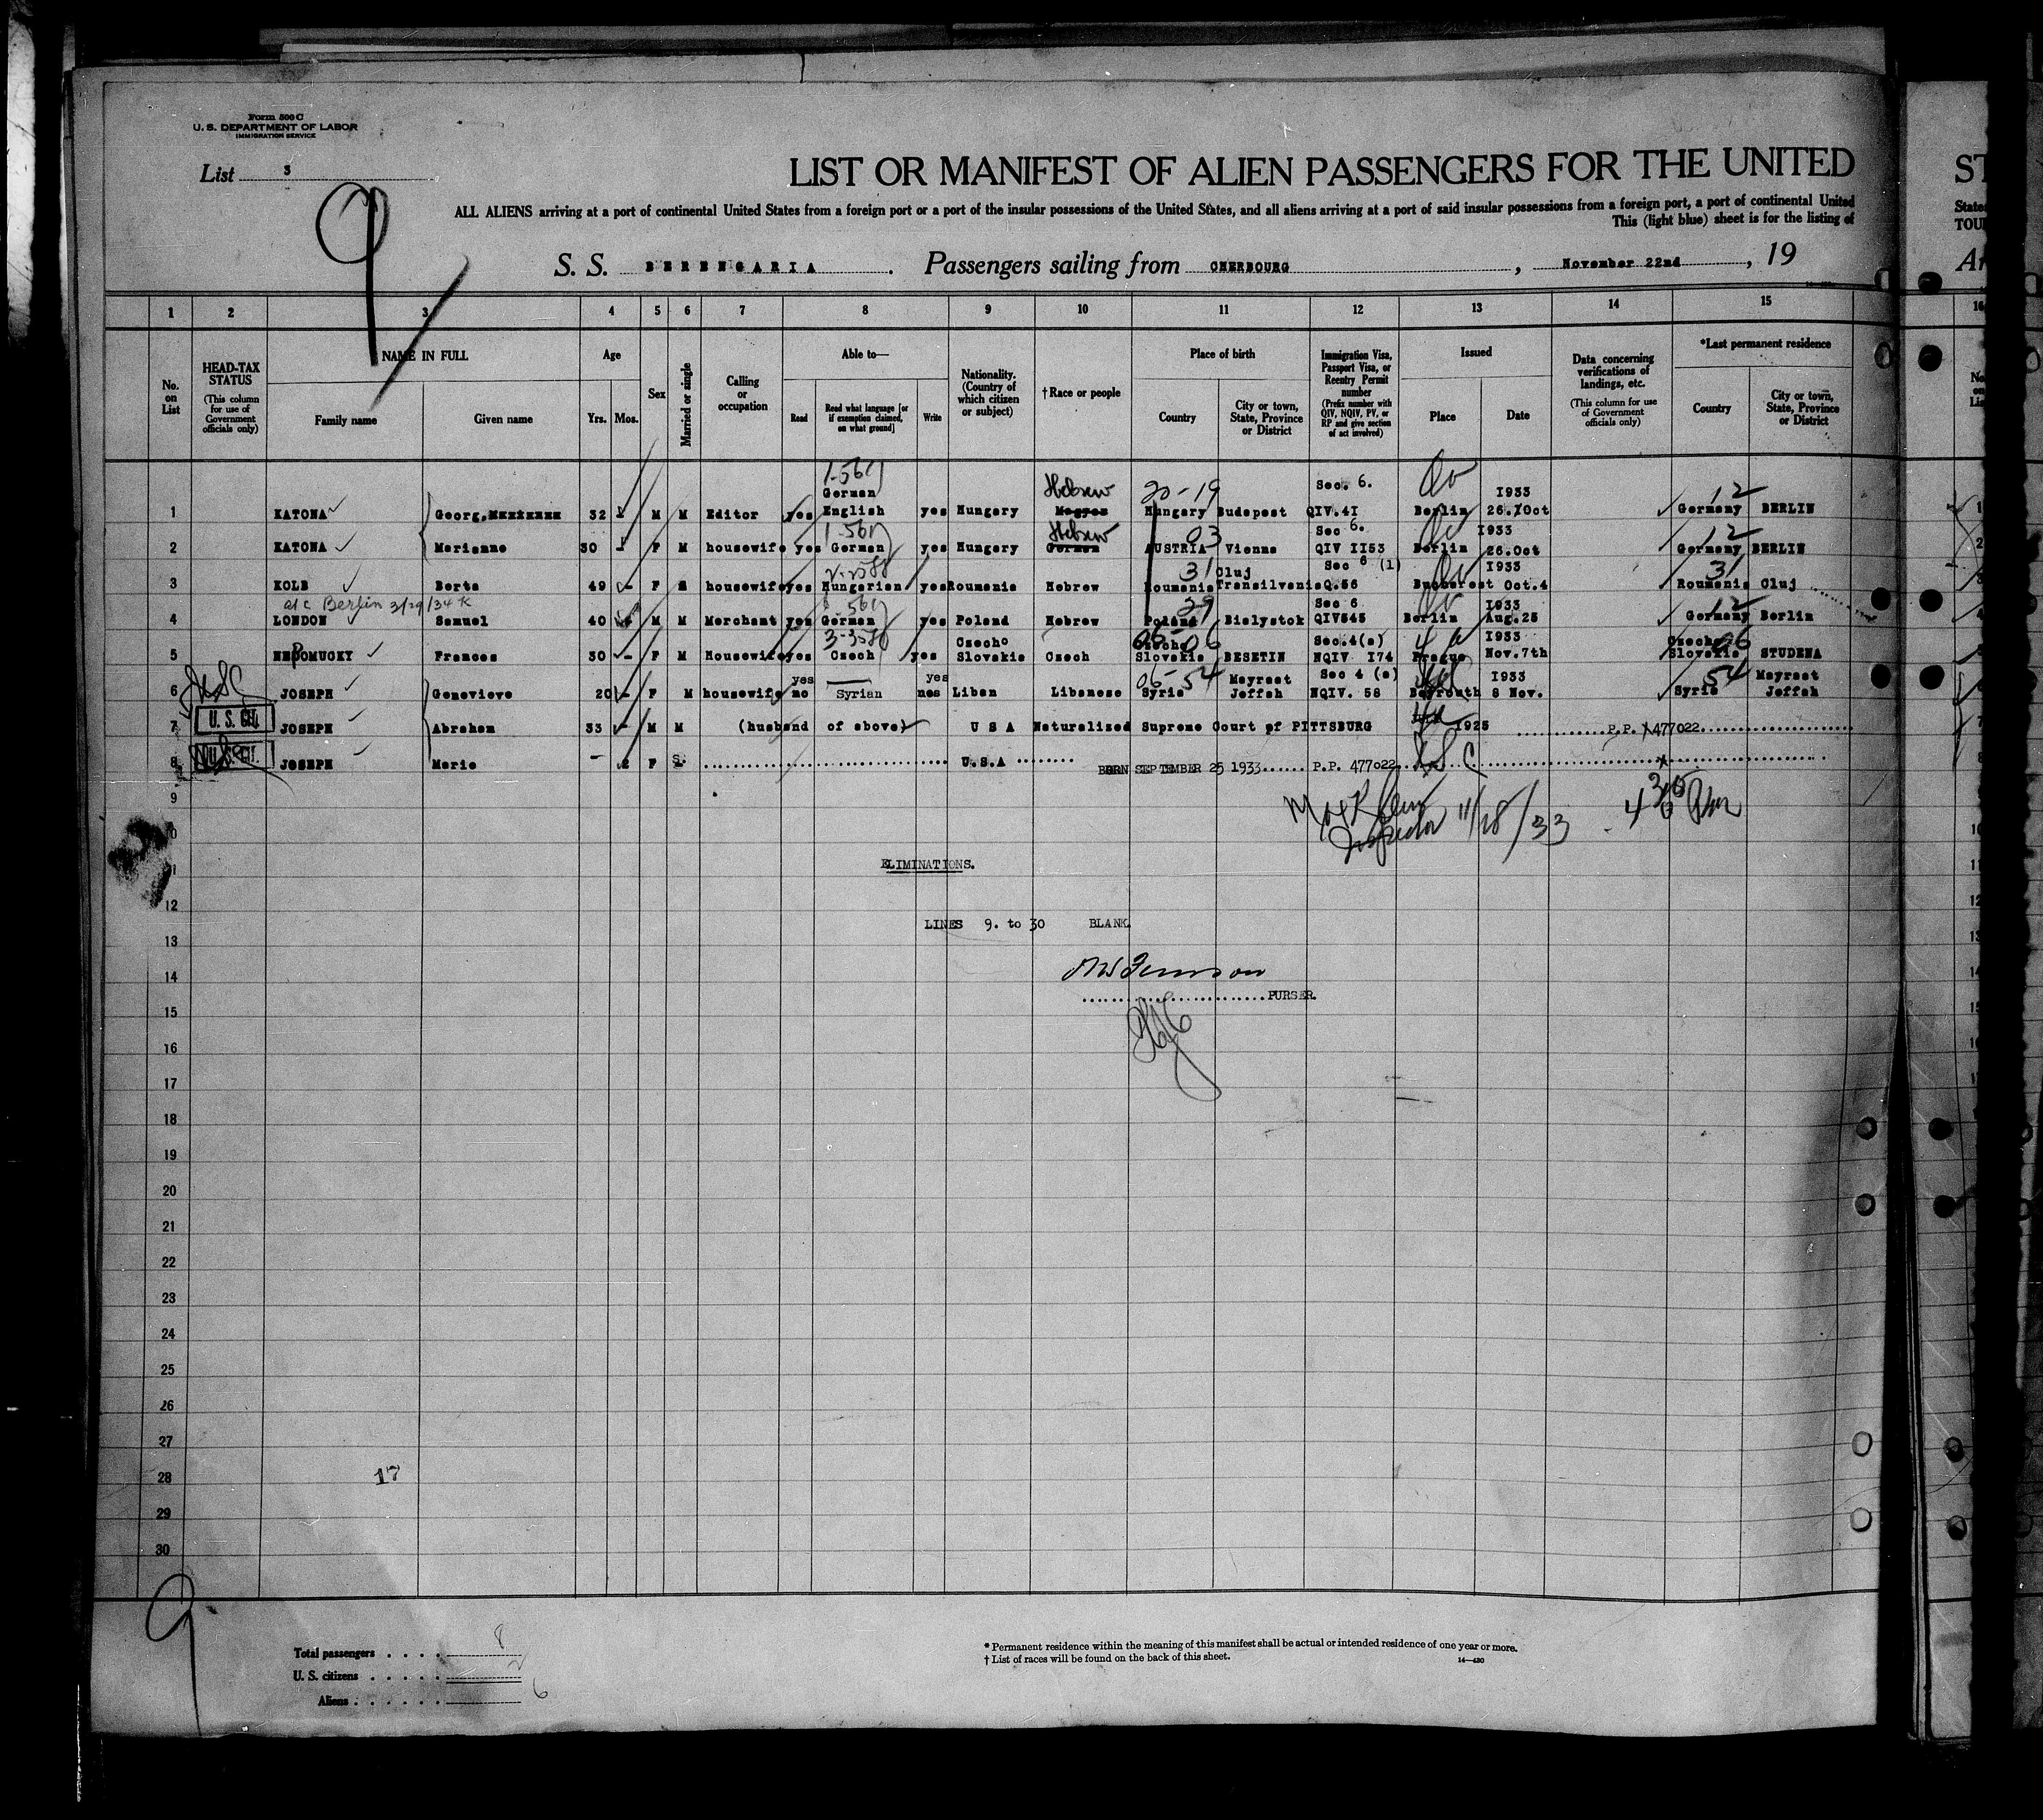 Form 500 C
U. S. DEPARTMENT OF LABOR
IMMIGRATION SERVICE
List 3
9
LIST OR MANIFEST OF ALIEN PASSENGERS FOR THE UNITED
ALL ALIENS arriving at a port of continental United States from a foreign port or a port of the insular possessions of the United States, and all aliens arriving at a port of said insular possessions from a foreign port, a port of continental United
This (light blue) sheet is for the listing of
S. S. BERENGARIA. Passengers sailing from CHERBOURG, November 22nd, 19
1 2 3 4 5 6 7 8 9 10 11 12 13 14 15
No. on List
HEAD-TAX STATUS
(This column for use of Government officials only)
NAME IN FULL
Family name
Given name
Age
Yrs. Mos.
Sex
Married or single
Calling or occupation
Able to—
Read
Read what language [or if exemption claimed, on what ground]
Write
Nationality. (Country of which citizen or subject)
†Race or people
Place of birth
Country
City or town, State, Province or District
Immigration Visa, Passport Visa, or Reentry Permit number
(Prefix number with QIV, NQIV, PV, or RP and give section of act involved)
Issued
Place
Date
Data concerning verifications of landings, etc.
(This column for use of Government officials only)
*Last permanent residence
Country
City or town, State, Province or District
1 KATONA Georg, 32 - M M Editor yes German English yes Hungary Hebrew Magyar 20-19 Hungary Budapest Sec. 6. QIV.4I Berlin 1933 26.Oct 12 Germany BERLIN
2 KATONA Marianne 30 - F M housewife yes German yes Hungary Hebrew German 03 AUSTRIA Vienna Sec 6. QIV II53 Berlin I933 26.Oct 12 Germany BERLIN
3 KOLB Berta 49 - F M housewife yes Hungarian yes Roumania Hebrew 31 Roumania Cluj Transilvania Sec 6 (1) Q.56 Bucharest I933 Oct.4 31 Roumania Cluj
Berlin 3/29/34
4 LONDON Samuel 40 M M Merchant yes German yes Poland Hebrew 29 Poland Bialystok Sec 6 QIV545 Berlin I933 Aug.25 12 Germany Berlin
5 NEPOMUCKY Frances 30 - F M Housewife yes Czech yes Czecho Slovakia Czech 06-06 Czecho Slovakia BESETIN Sec.4(e) NQIV I74 Prague I933 Nov.7th 06 Czecho Slovakia STUDENA
6 JOSEPH Genevieve 20 - F M housewife yes no Syrian yes Liban Libanese 06-54 Syria Mayraat Jeffah Sec 4 (e) NQIV. 58 Beyrouth I933 8 Nov. 54 Syria Mayraat Jeffah
7 U. S. CIT. JOSEPH Abraham 33 - M M (husband of above) U S A Naturalised Supreme Court of PITTSBURG 1925 P.P. 477022
8 U. S. CIT. JOSEPH Marie - 2 F S. U.S.A BORN SEPTEMBER 25 1933 P.P. 477022
9
Inspector 11/28/33
10
11 ELIMINATIONS.
12
LINES 9. to 30 BLANK.
13
14
PURSER.
15
16
17
18
19
20
21
22
23
24
25
26
27
28 17
29
30
Total passengers 8
U. S. citizens 2
Aliens 6
* Permanent residence within the meaning of this manifest shall be actual or intended residence of one year or more.
† List of races will be found on the back of this sheet.
14—430